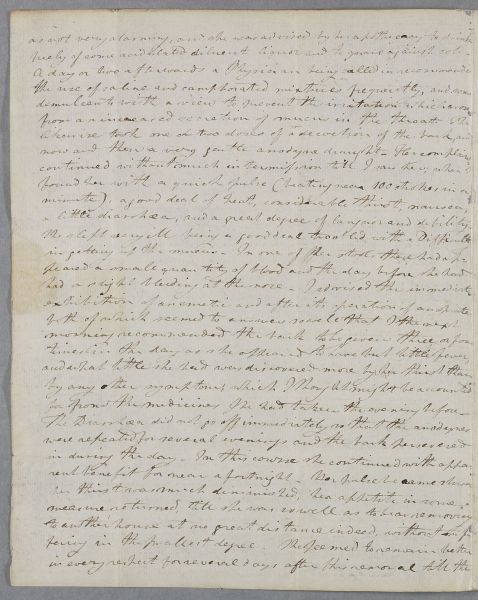 as not very alarming, and she was advised by her apothecary to drink
freely of some acidulated diluent liquor and to guard against cold.
A day or two afterwards a Physician being called in recommended
the use of saline and camphorated mixtures frequently, and some
demulcents with a view to prevent the irritation which arose
from an increased secretion of mucus in the throat. She
likewise took one or two doses of a decoction of the bark, and
now and then a very gentle anodyne draught. Her complaints
continued without much intermission till I saw her, when I
found her with a quick pulse (beating near 100 strokes in a
minute), a good deal of heat, considerable thirst, nausea,
a little diarrhœa, and a great degree of languor and debility.
She slept very ill being a good deal troubled with a Difficulty
in getting up the mucus. In one of her stools there had ap-
peared a small quantity of blood and the day before she had
had a slight bleeding at the nose. I advised the immediate
exhibition of an emetic and after its operation of an opiate
both of which seemed to answer so well that I the next
morning recommended the bark to be given three or four
times in the day as she appeared to have but little fever,
and what little she had was discovered more by her thirst than
by any other symptoms, which I thought might be accounted
for from the medicines she had taken the evening before.
The Diarrhœa did not go off immediately so that the anodynes
were repeated for several evenings and the bark persevered
in during the day. In this course she continued with appa-
rent benefit for near a fortnight. Her pulse became slower
her thirst was much diminished, her appetite in some
measure returned, till she was so well as to bear removing
to another house at no great distance indeed, without suf-
fering in the smallest degree. She seemed to remain better
in every respect for several days after this removal till the